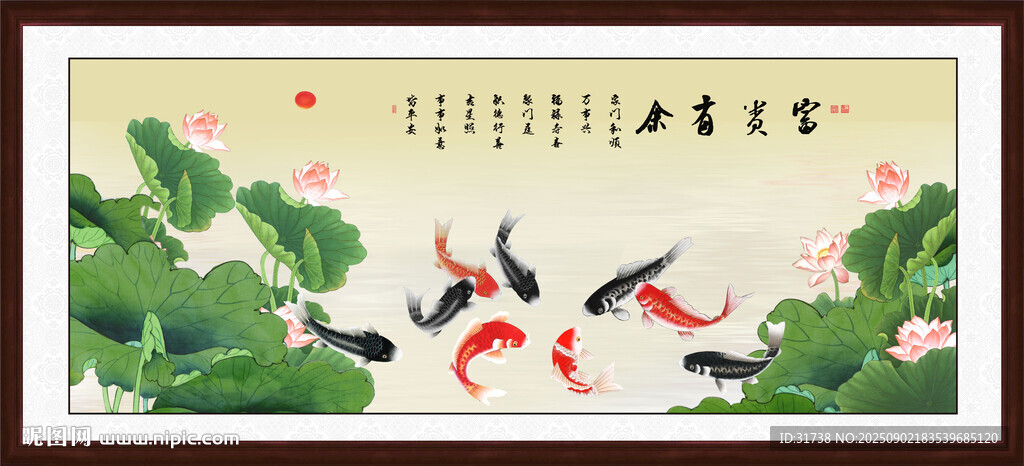 富贵有余
家门和顺
万事兴
福禄寿喜
聚门庭
积德行善
吉星照
事事如意
皆平安
昵图网 www.nipic.com
ID:31738 NO:20250902183539685120